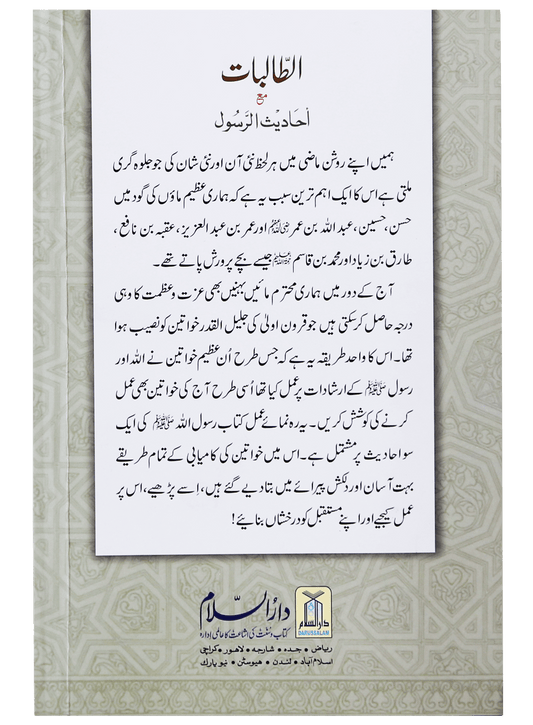 الطّالبات
مع
اَحَادیْث الرَسُول
ہمیں اپنے روشن ماضی میں ہر لحظہ نئی آن اور نئی شان کی جو جلوہ گری
ملتی ہے اس کا ایک اہم ترین سبب یہ ہے کہ ہماری عظیم ماؤں کی گود میں
حسن، حسین، عبد اللہ بن عمر رضی اللہ عنہم اور عمر بن عبد العزیز، عقبہ بن نافع،
طارق بن زیاد اور محمد بن قاسم جیسے بچے پرورش پاتے تھے۔
آج کے دور میں ہماری محترم مائیں بہنیں بھی عزت و عظمت کا وہی
درجہ حاصل کر سکتی ہیں جو قرون اولیٰ کی جلیل القدر خواتین کو نصیب ہوا
تھا۔ اس کا واحد طریقہ یہ ہے کہ جس طرح اُن عظیم خواتین نے اللہ اور
رسول ﷺ کے ارشادات پر عمل کیا تھا اُسی طرح آج کی خواتین بھی عمل
کرنے کی کوشش کریں۔ یہ رہ نمائے عمل کتاب رسول اللہ ﷺ کی ایک
سو احادیث پر مشتمل ہے۔ اس میں خواتین کی کامیابی کے تمام طریقے
بہت آسان اور دلکش پیرائے میں بتا دیے گئے ہیں، اِسے پڑھیے، اس پر
عمل کیجیے اور اپنے مستقبل کو درخشاں بنائیے!
دارُالسّلام
کتاب و سُنّت کی اشاعت کا عالمی ادارہ
دارالسلام
DARUSSALAM
ریاض • جدہ • شارجہ • لاہور • کراچی
اسلام آباد • لندن • ہیوسٹن • نیو یارک